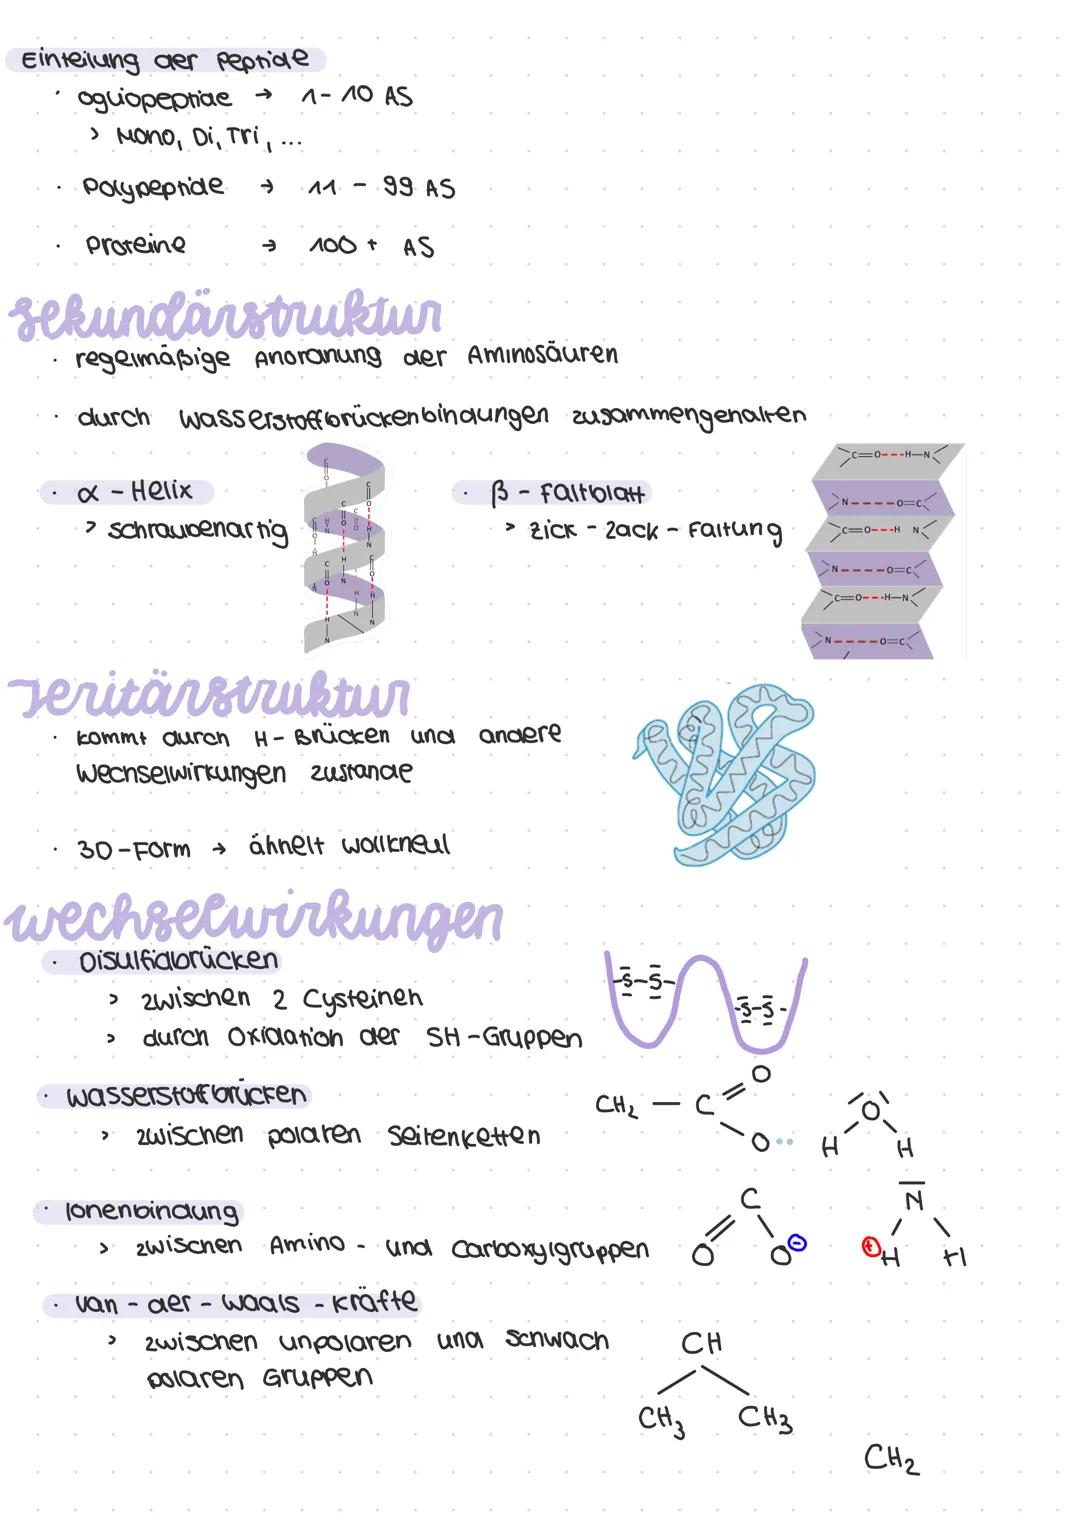 Einteilung der Peptide
· Ogliopeptide → 1 - 10 AS
> Mono, Di, Tri, ...
· Polypeptide → 11 - 99 AS
· Proteine → 100 + AS
Sekundärstruktur
· regelmäßige Anordnung der Aminosäuren
· durch Wasserstoffbrückenbindungen zusammengehalten
· α - Helix
> schraubenartig
· β - Faltblatt
> Zick - Zack - Faltung
C=O---H-N
N-----O=C
C=O---H N
N-----O=C
C=O---H-N
N-----O=C
Teritärstruktur
· kommt durch H - Brücken und andere
Wechselwirkungen zustande
· 3D - Form → ähnelt Wollkneul
Wechselwirkungen
· Disulfidbrücken
> zwischen 2 Cysteinen
> durch Oxidation der SH - Gruppen
-S-S-
-S-S-
· Wasserstoffbrücken
> zwischen polaren Seitenketten
CH₂ — C
O
O
O
H
H
· Ionenbindung
> zwischen Amino - und Carboxylgruppen
C
O
O ⊖
N
⊕ H
H
· Van - der - Waals - Kräfte
> zwischen unpolaren und schwach
polaren Gruppen
CH
CH₃ CH₃
CH₂